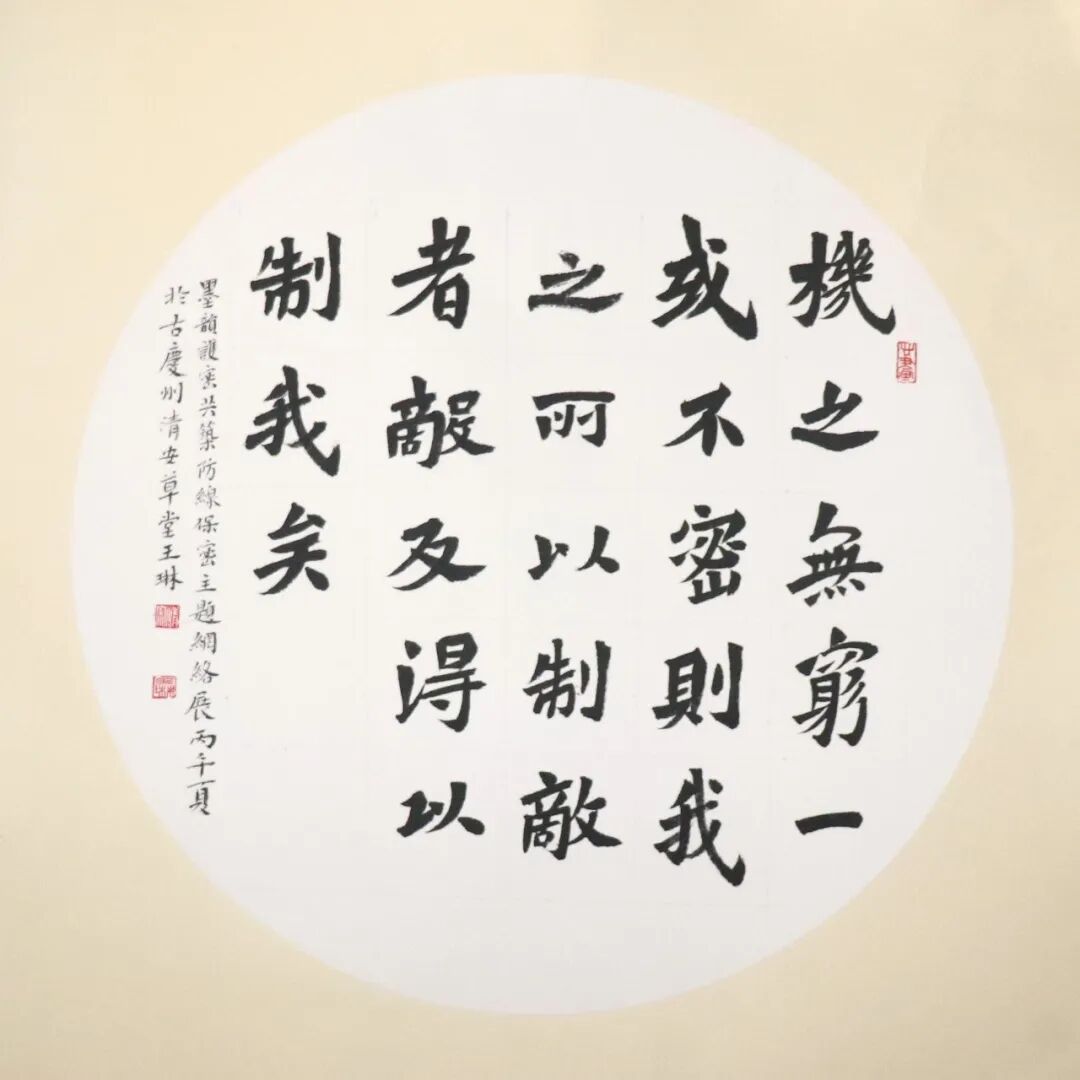 機之無窮一
或不密則我
之所以制敵
者敵及得以
制我矣
墨韻護密共築防線保密主題網絡展丙午夏
於古慶州清安草堂王琳